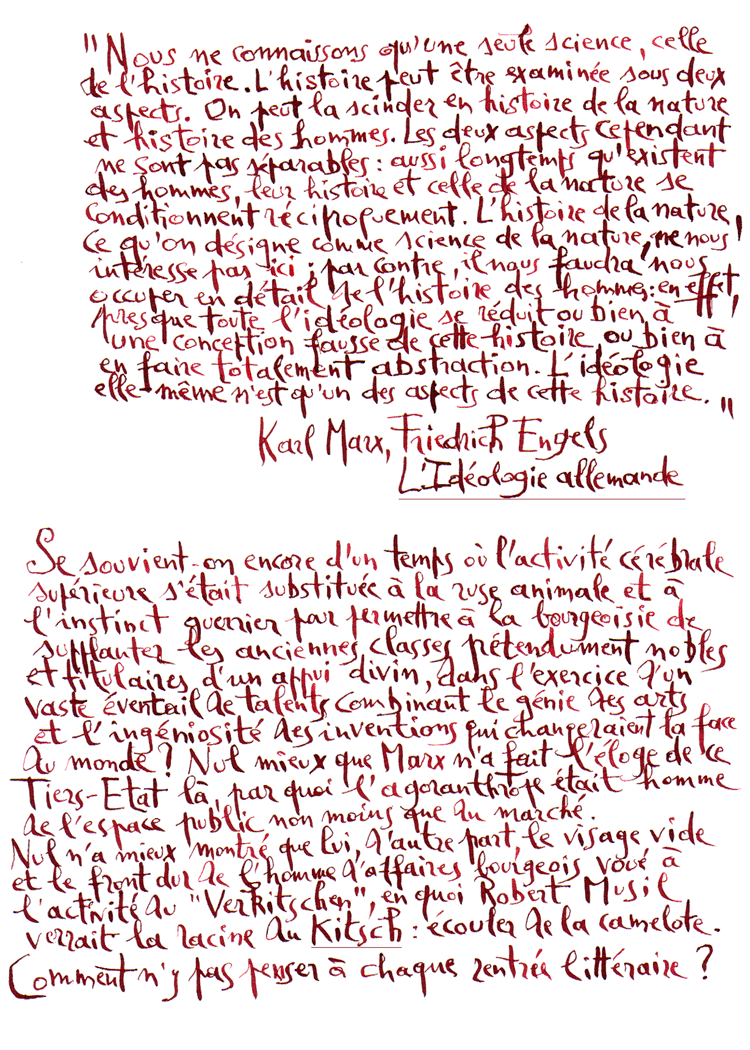 "Nous ne connaissons qu'une seule science, celle
de l'histoire. L'histoire peut être examinée sous deux
aspects. On peut la scinder en histoire de la nature
et histoire des hommes. Les deux aspects cependant
ne sont pas séparables : aussi longtemps qu'existent
des hommes, leur histoire et celle de la nature se
conditionnent réciproquement. L'histoire de la nature,
ce qu'on désigne comme science de la nature, ne nous
intéresse pas ici ; par contre, il nous faudra nous
occuper en détail de l'histoire des hommes : en effet,
presque toute l'idéologie se réduit ou bien à
une conception fausse de cette histoire, ou bien à
en faire totalement abstraction. L'idéologie
elle-même n'est qu'un des aspects de cette histoire."
Karl Marx, Friedrich Engels
L'Idéologie allemande
Se souvient-on encore d'un temps où l'activité cérébrale
supérieure s'était substituée à la ruse animale et à
l'instinct guerrier pour permettre à la bourgeoisie de
supplanter les anciennes classes prétendument nobles
et titulaires d'un appui divin, dans l'exercice d'un
vaste éventail de talents combinant le génie des arts
et l'ingéniosité des inventions qui changeraient la face
du monde ? Nul mieux que Marx n'a fait l'éloge de ce
Tiers-Etat là, par quoi l'agoranthrope était homme
de l'espace public non moins que du marché.
Nul n'a mieux montré que lui, d'autre part, le visage vide
et le front dur de l'homme d'affaires bourgeois voué à
l'activité du "Verkitschen", en quoi Robert Musil
verrait la racine du Kitsch : écouler de la camelote.
Comment n'y pas penser à chaque rentrée littéraire ?